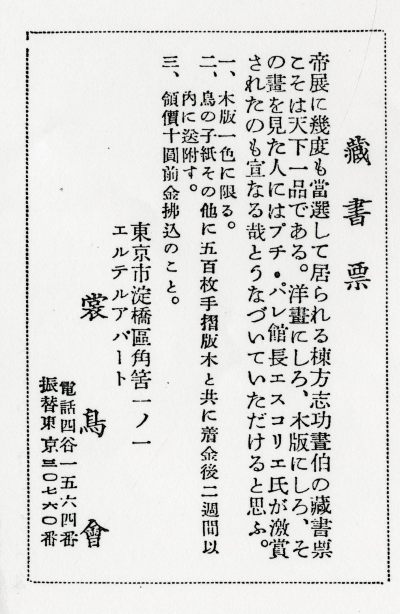 藏書票
帝展に幾度も當選して居られる棟方志功畫伯の藏書票
こそは天下一品である。洋畫にしろ、木版にしろ、そ
の畫を見た人にはプチ・パレ館長エスコリエ氏が激賞
されたのも宣なる哉とうなづいていただけると思ふ。
一、木版一色に限る。
二、鳥の子紙その他に五百枚手摺版木と共に着金後二週間以
內に送附す。
三、領價十圓前金拂込のこと。
東京市淀橋區角筈一ノ一
エルテルアパート
裳鳥會
電話四谷一五六四番
振替東京三〇七六〇番